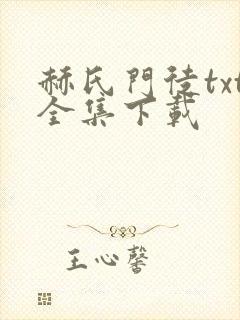 赫氏門徒txt
全集下載
王心馨